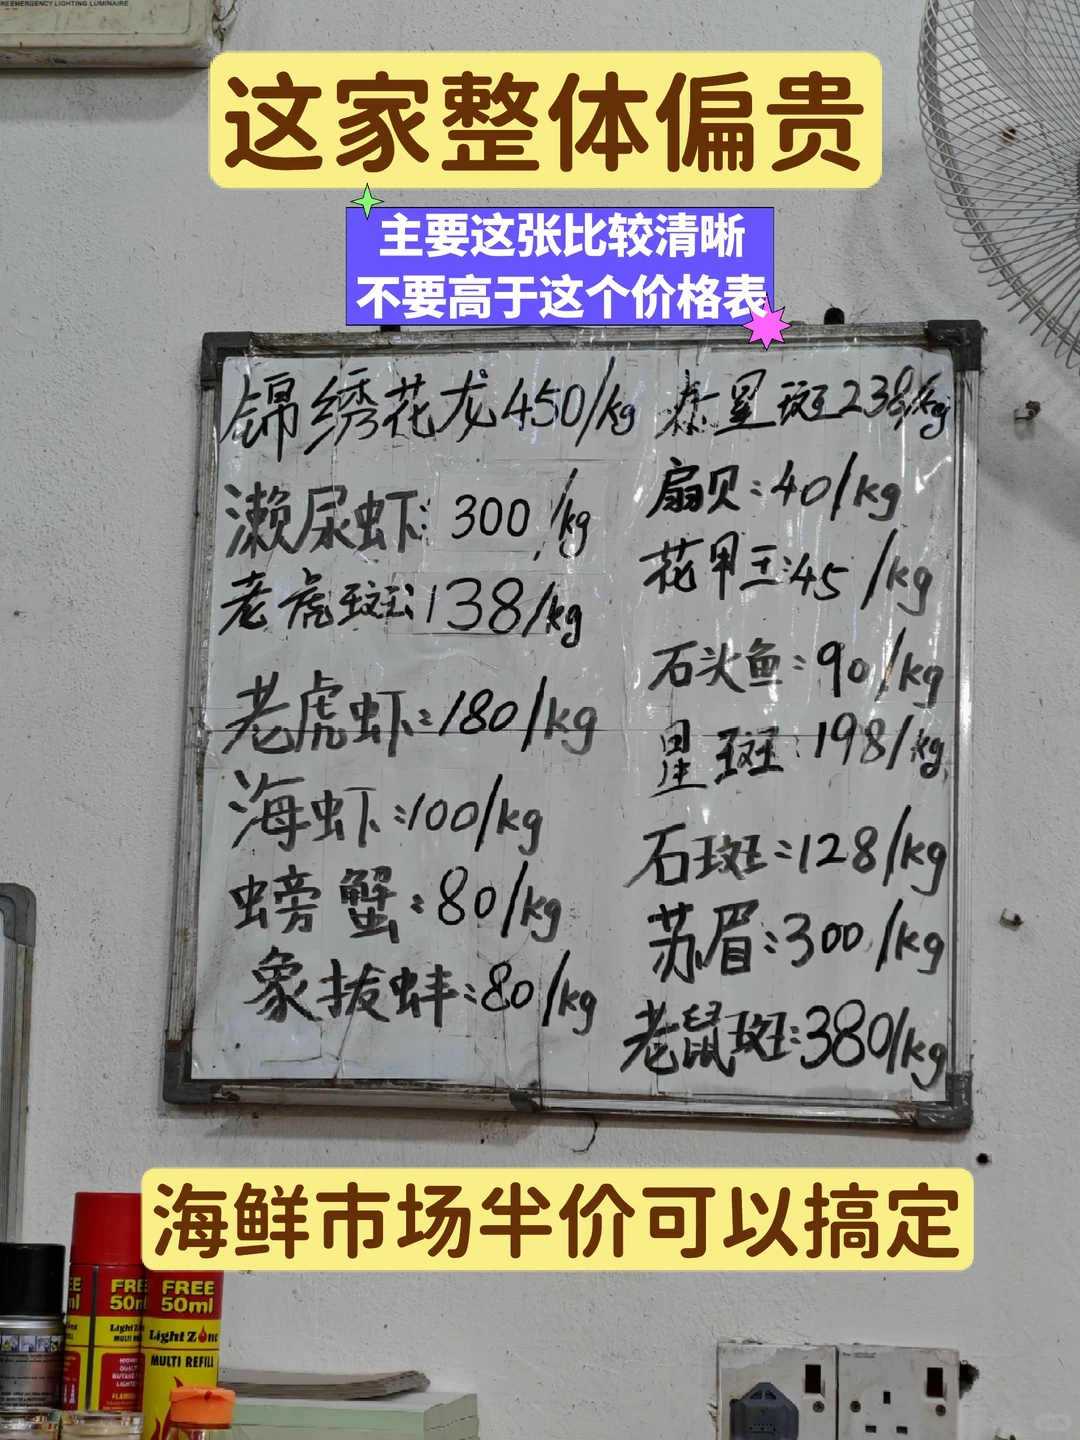 RE EMERGENCY LIGHTING LUMINAIRE
这家整体偏贵
主要这张比较清晰
不要高于这个价格表
锦绣花龙450/kg
濑尿虾:300/kg
老虎斑:138/kg
老虎虾:180/kg
海虾:100/kg
螃蟹:80/kg
象拔蚌:80/kg
泰星斑238/kg
扇贝:40/kg
花甲王:45/kg
石头鱼:90/kg
星斑:198/kg
石斑:128/kg
苏眉:300/kg
老鼠斑:380/kg
海鲜市场半价可以搞定
FREE
50ml
Light Zone
MULTI REFILL
FREE
50ml
Light Zone
MULTI REFILL